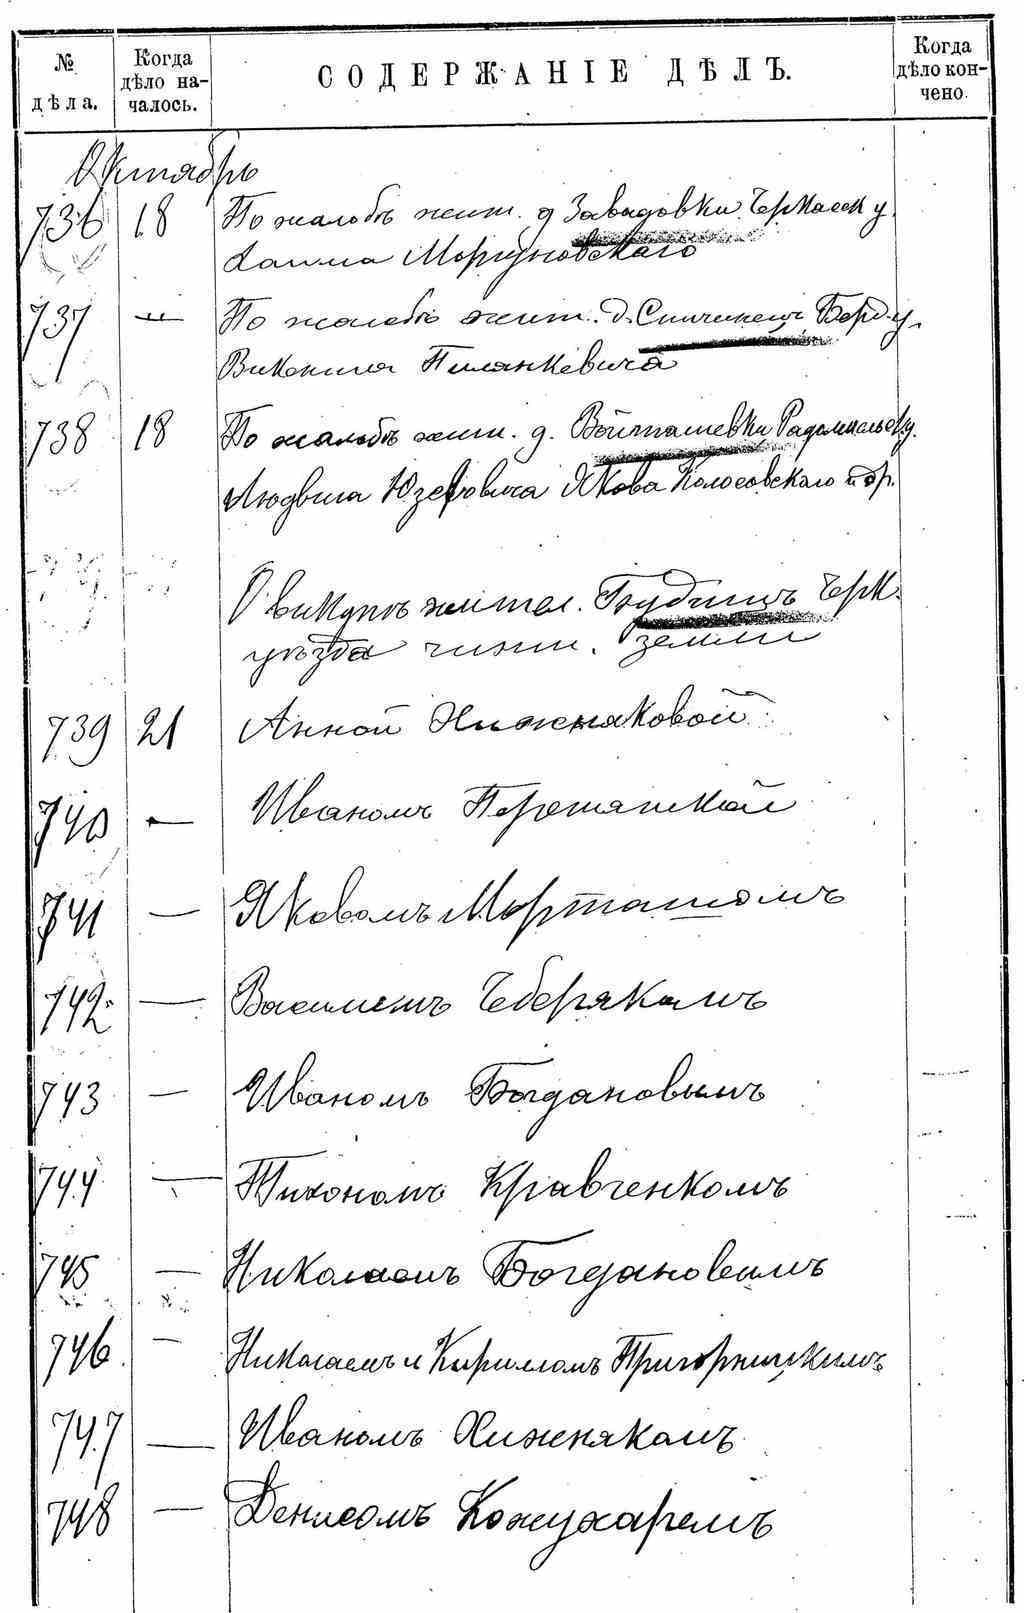 № дѣла.
Когда дѣло началось.
СОДЕРЖАНІЕ ДѢЛЪ.
Когда дѣло кончено.
Октябрь
736 18 По жалобѣ жит. д Завадовки Черкасск у.
Хаима Моргуновскаго
737 — " — По жалобѣ жит. д. Спичинецъ Берд. у.
Викентия
738 18 По жалобѣ жит. д. Войташевки Радомысльск у.
Людвига Юзефовича Якова Колосовскаго и др.
О выкупѣ жител. Грудишъ Черк.
уѣзда чинш. земли
739 21 Анной Хижняковой
740 — Иваномъ
741 — Яковомъ Морташомъ
742 — Василіемъ Чеберякомъ
743 — Иваномъ Богдановымъ
744 — Тихономъ Кравченкомъ
745 — Николаемъ Богдановымъ
746. — Николаемъ и Кирилломъ Пригорницкимъ
747 — Иваномъ Хижнякомъ
748 — Денисомъ Кожухаремъ